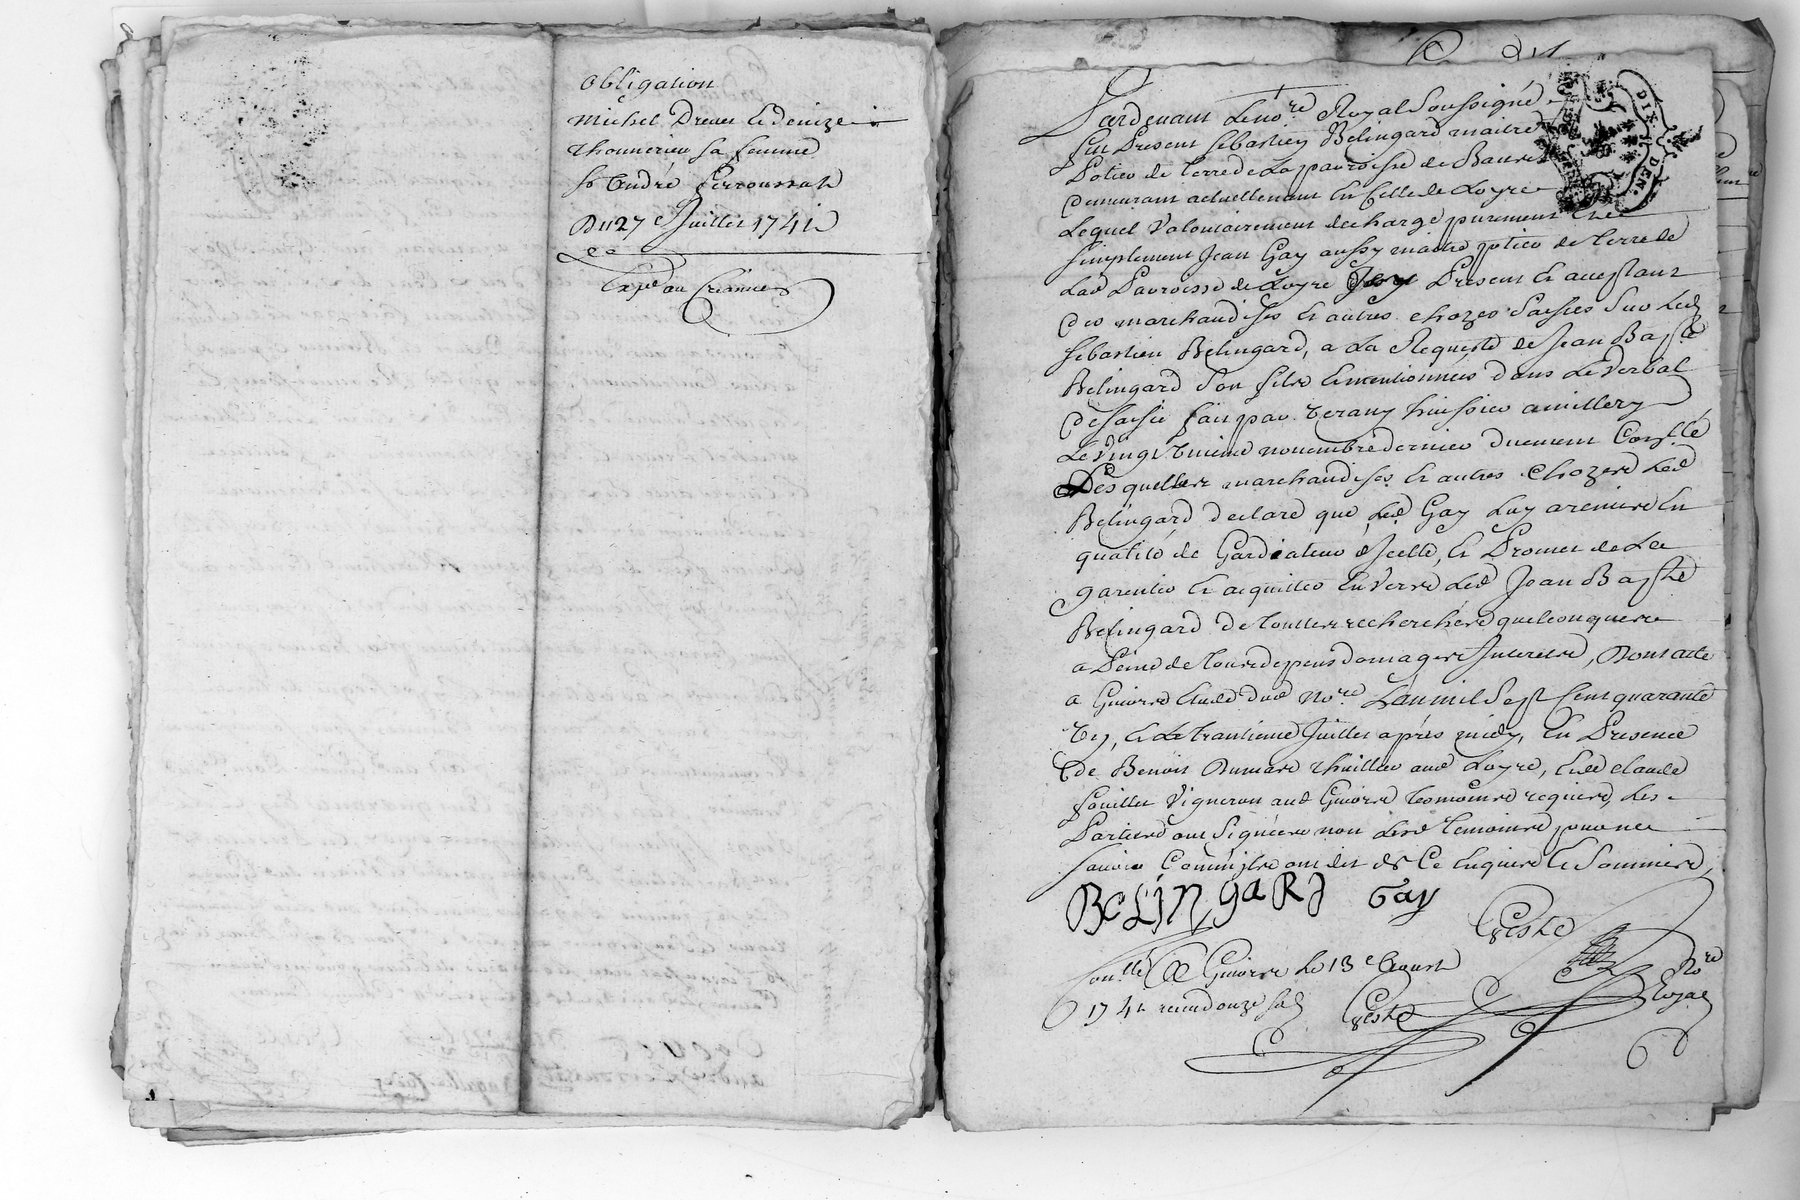 obligation
Michel Dreuet et denize
thonnerieu sa femme
Sr André Perroussat
Du 27e Juillet 1741
Expe au Créancier
Pardevant Le nore Royal Soussigné
fut Present Sebastien Belingard maitre
Potier de terre de La parroisse de
demeurant actuellement En Celle de Loyre
Lequel Volontairement decharge purement Et
simplement Jean Gay aussy maitre potier de terre de
Lad Parroisse de Loyre Present Et acceptant
des marchandises Et autres chozes Saisies Sur Led
Sebastien Belingard, a La Requeste de Jean Bapte
Belingard Son fils Et mentionnées dans Le Verbal
de saisie fait par huissier a millery
Le Vingt novembre dernier duement Conllé
Desquelles marchandises Et autres Chozes Led
Belingard declare que Led Gay Luy a remis En
qualité de Gardiateur d'Icelle, Et Promet de Le
garentir Et acquitter Envers Led Jean Bapte
Belingard de touttes recherches quelconques
a Peine de tous depens domages Interets, Dont acte
a Givors Etude dud Nore L'an mil Sept Cent quarante
un, Et Le trantieme Juillet après midy, En Presence
de Benoit thuillier aud Loyre, Et de claude
Vigneron aud Givors temoins requis, Les
Parties ont Signées non Lesd temoins pour ne
savoir Comme ils ont dit de Ce Enquis Et Sommés
BELINgARD Gay
Nore
Conllé a Givors Le 13e Aoust
Royal
1741 reçu douze sols